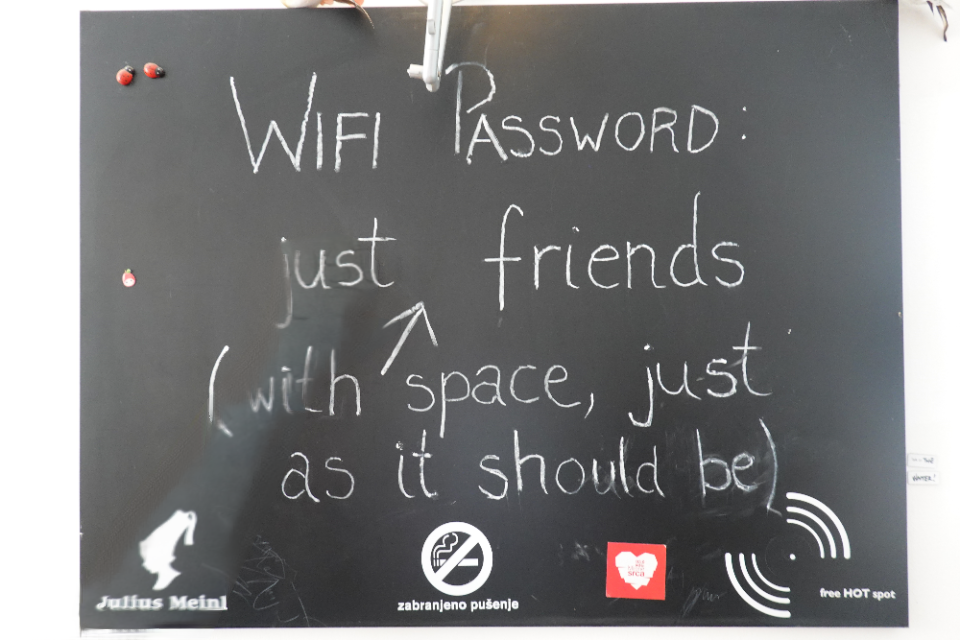 WIFI PASSWORD:
just friends
(with space, just
as it should be)
Julius Meinl
zabranjeno pušenje
srca
free HOT spot